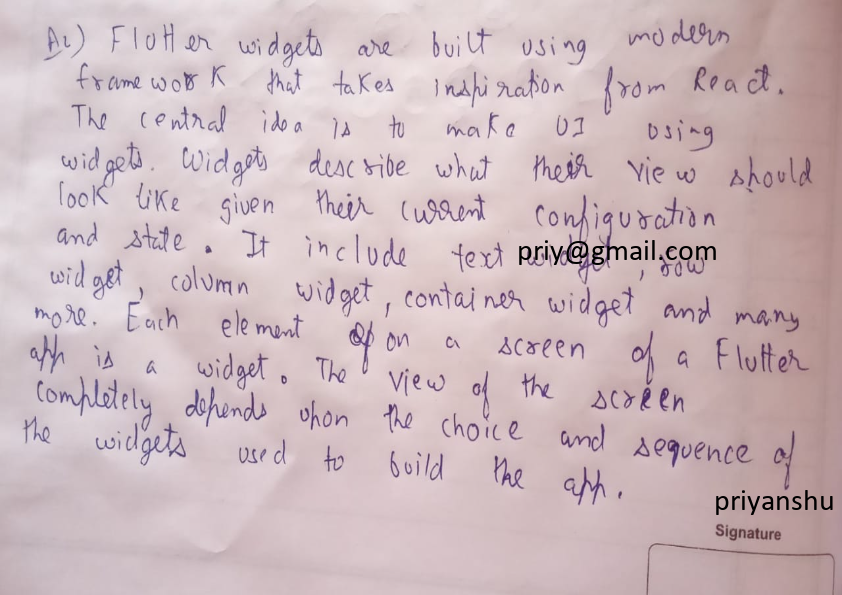 A2) Flutter widgets are built using modern
framework that takes inspiration from React.
The central idea is to make UI using
widgets. Widgets describe what their view should
look like given their current configuration
and state. It include text widget, row
priy@gmail.com
widget, column widget, container widget and many
more. Each element on a screen of a Flutter
app is a widget. The view of the screen
completely depends upon the choice and sequence of
the widgets used to build the app.
priyanshu
Signature